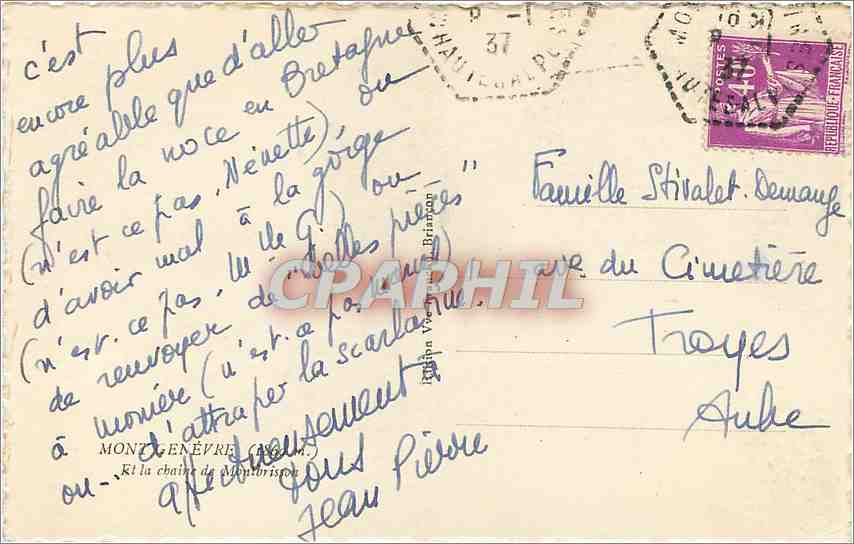 c'est plus
encore
agréable que d'aller
faire la noce en Bretagne
(n'est ce pas, Nénette) ou
d'avoir mal à la gorge
(n'est-ce pas, Mlle G.) ou
de renvoyer de "belles pièces"
à monter (n'est-ce pas
ou... d'attraper la scarlatine!
affectueusement à
tous
Jean Pierre
MONTGENÈVRE
Et la chaîne de Montbrison
Edition Vve Briançon
37
HAUTES ALPES
POSTES
40
REPUBLIQUE-FRANÇAISE
Famille Stivalet-Demange
ave du Cimetière
Troyes
Aube
CPAPHIL